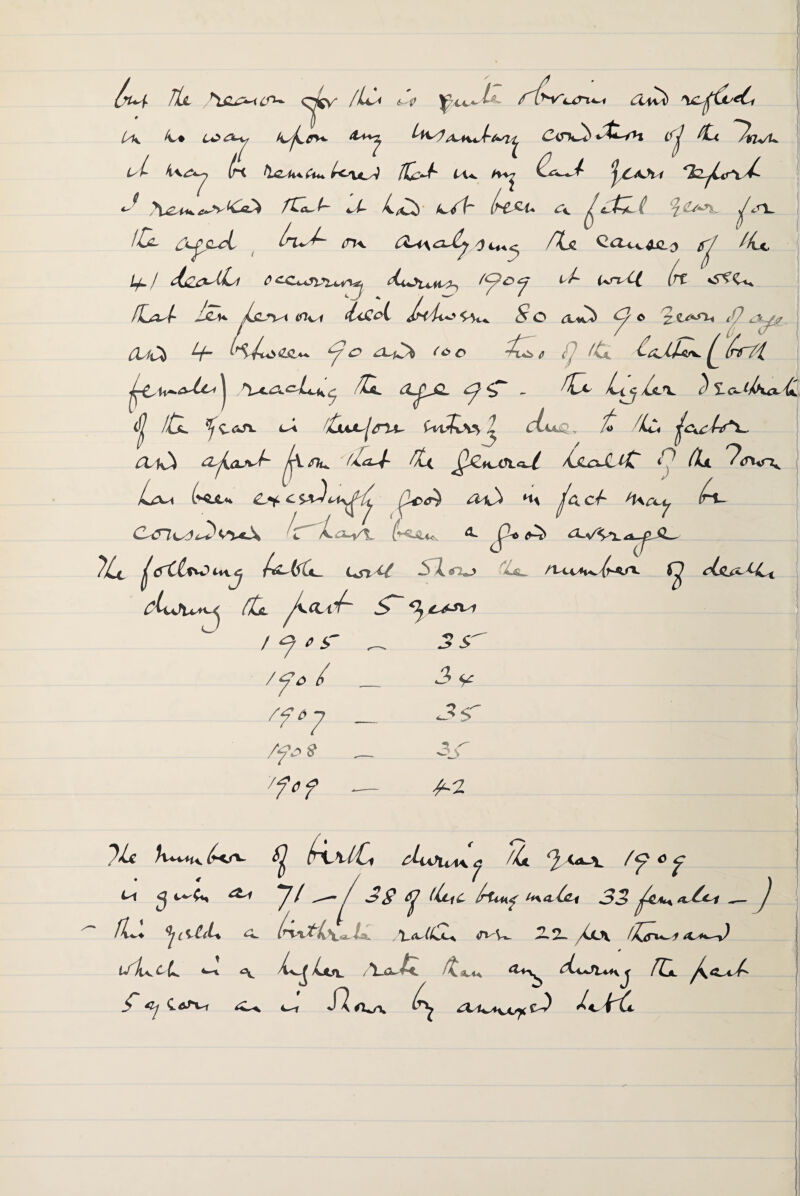 but the reason for this is quite obvious and reflects
in no way upon any insanitary condition of the Town
it may be remembered that in my last years Report
I remarked that it had not been a fatal year for
the aged, but on analysing the causes of the
41 deaths occurring during 1909 it will be seen
that ten persons died between 80 and 90 years of age
and 4 between 90 and 100 two of the latter (both
females) reaching the age 95 - the higher deathrate
of the year is therefore entirely due to this factor
and apart from that the general health of the Town
has been exceedingly good and in fact may be
considered to have been a good average
The following table will show the number of deaths
during the past 5 years
1905 — 35
1906 — 34
1907 — 35
1908 — 35
1909 — 42
The number of births during the year 1909
is given as 71 — (38 of these being males 33 females —)
this yields a birthrate ratio on 22 per thousand
which is a higher rate than any during the past
5 years as is shown by annexed table